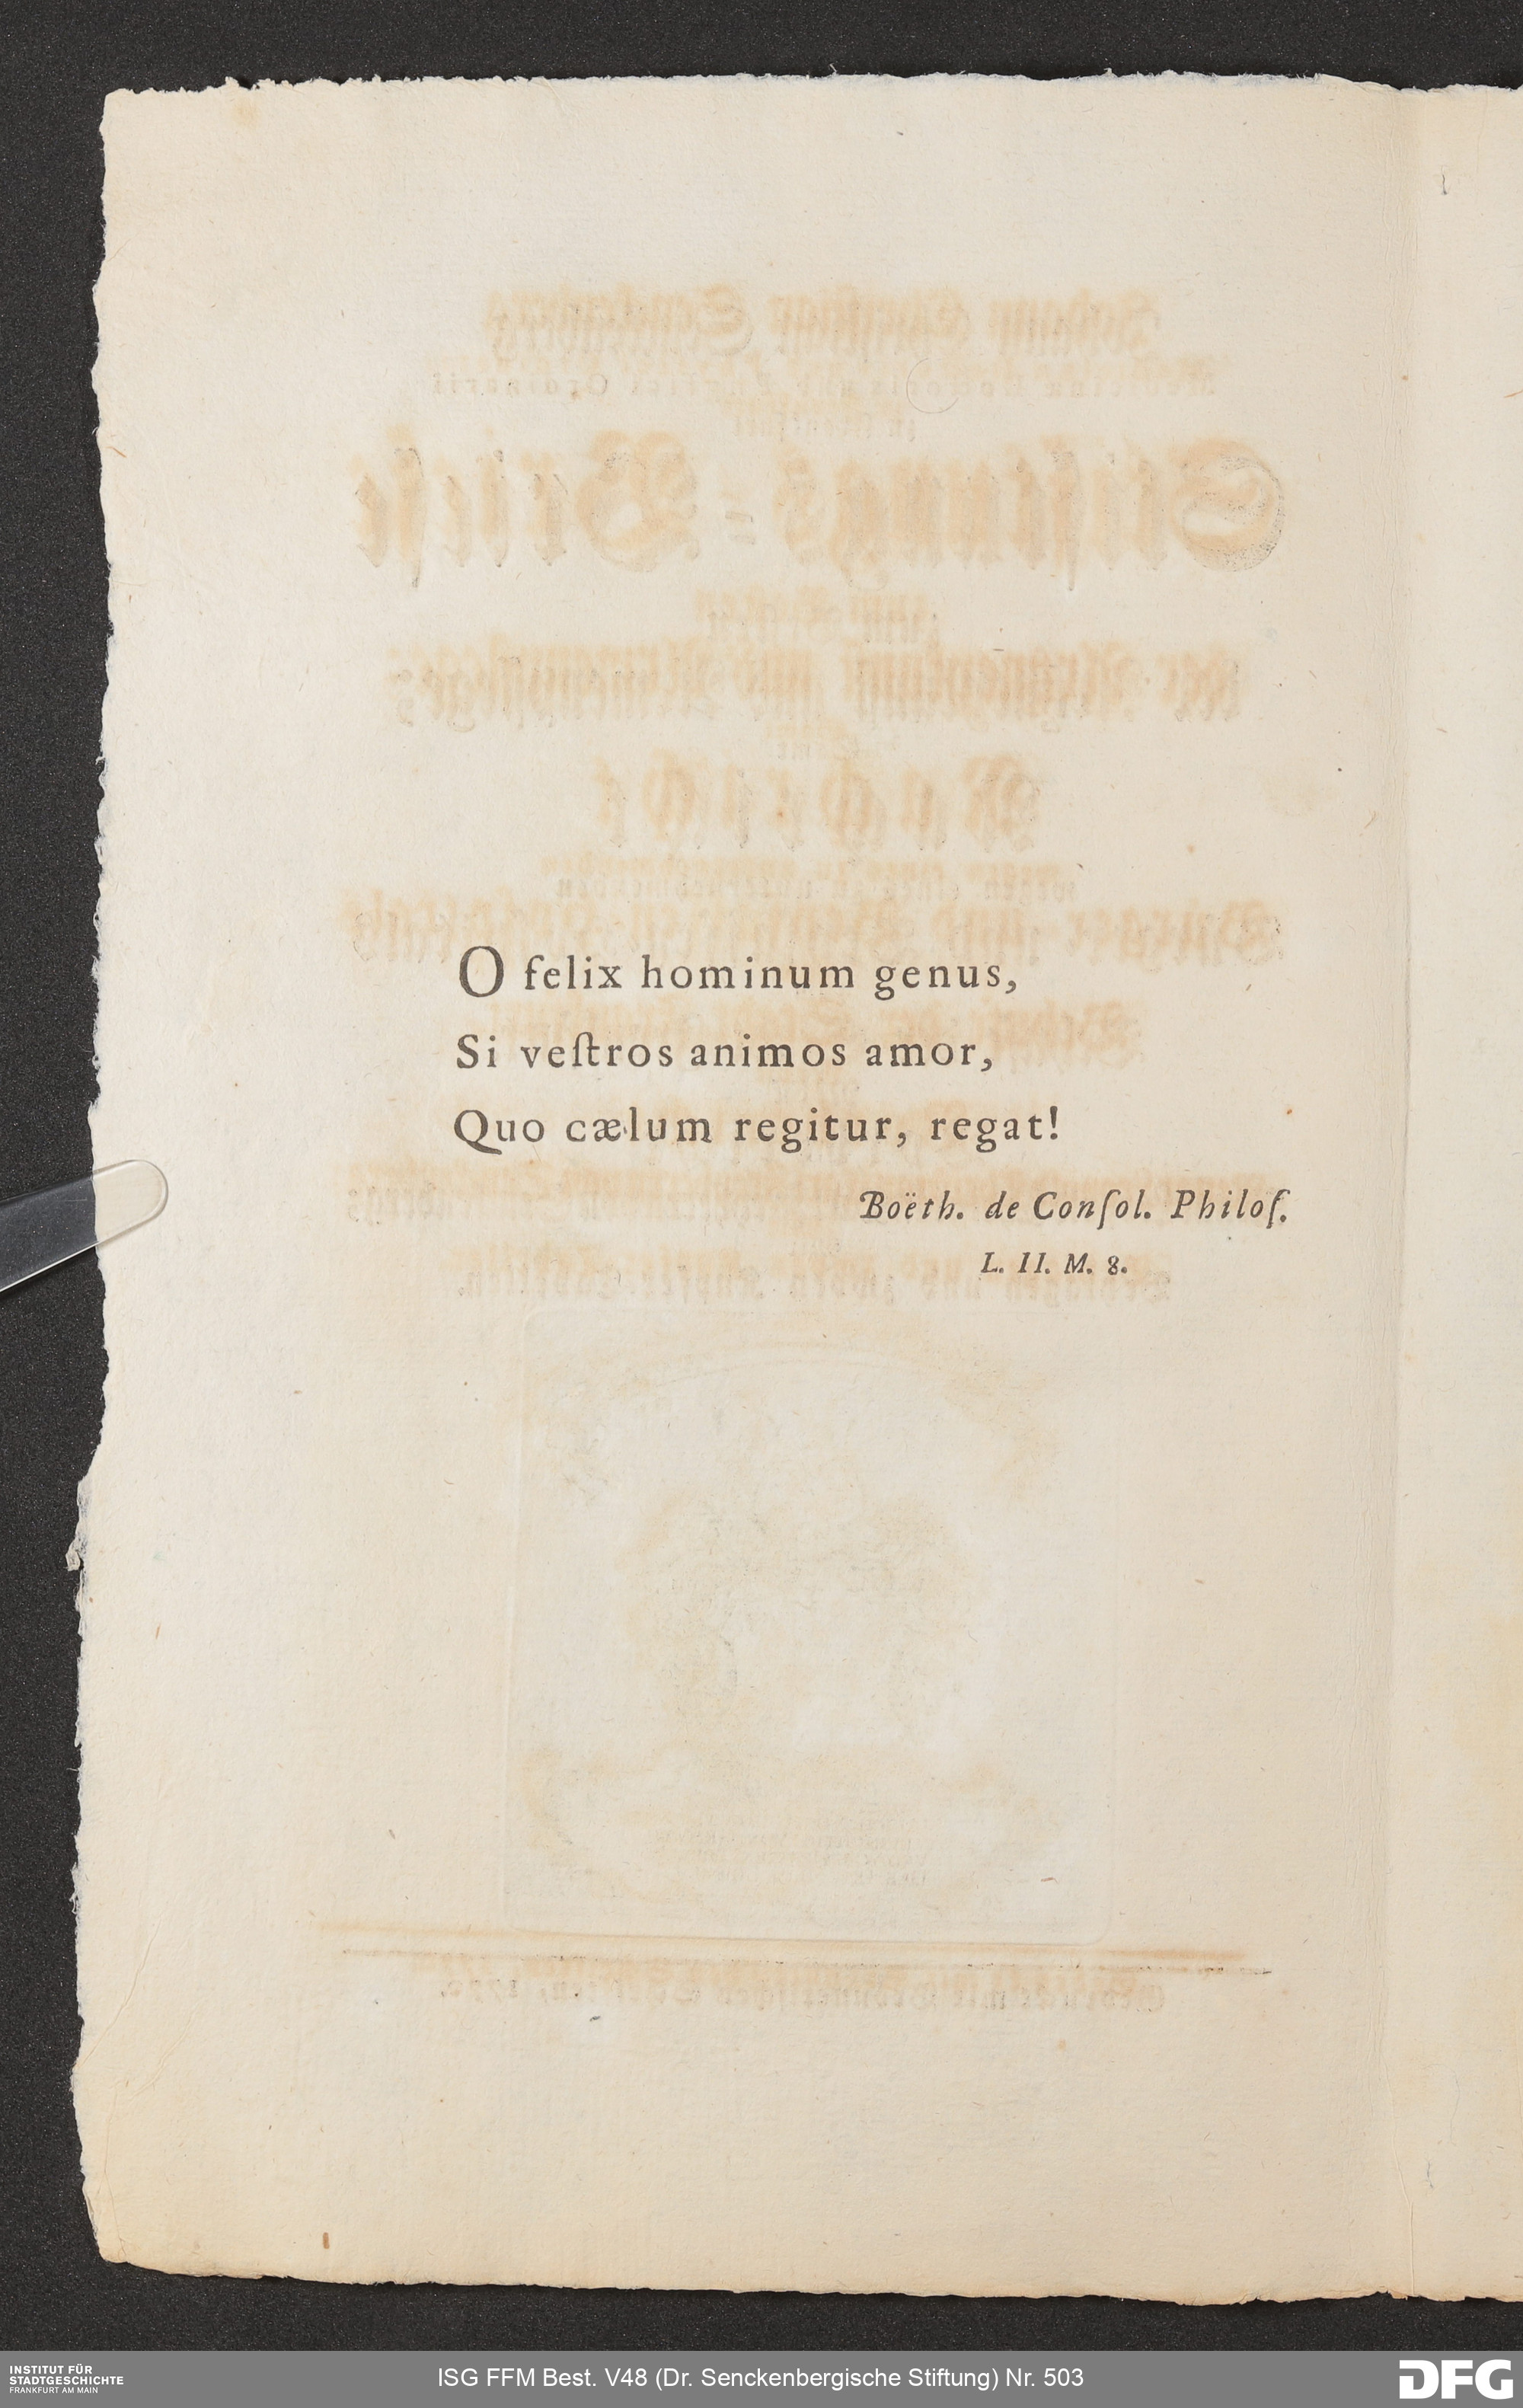 O felix hominum genus,
Si veſtros animos amor,
Quo cælum regitur, regat!
Boëth. de Conſol. Philoſ.
L. II. M. 8.
INSTITUT FÜR
STADTGESCHICHTE
FRANKFURT AM MAIN
ISG FFM Best. V48 (Dr. Senckenbergische Stiftung) Nr. 503
DFG